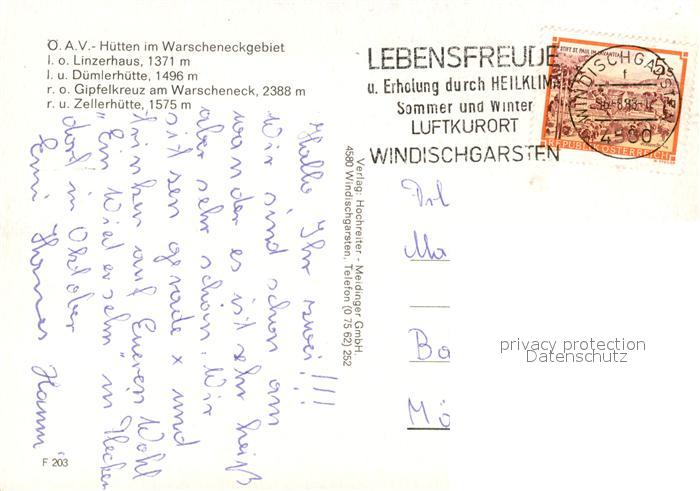 Ö. A.V.- Hütten im Warscheneckgebiet
l. o. Linzerhaus, 1371 m
l. u. Dümlerhütte, 1496 m
r. o. Gipfelkreuz am Warscheneck, 2388 m
r. u. Zellerhütte, 1575 m
LEBENSFREUDE
u. Erholung durch HEILKLIMA
Sommer und Winter
LUFTKURORT
WINDISCHGARSTEN
STIFT ST. PAUL IM LAVANTTAL
5S
REPUBLIK ÖSTERREICH
WINDISCHGARSTEN
4580
Hallo Ihr zwei!!!
Wir sind schon am
wandern es ist sehr heiß
aber sehr schön. Wir
sitzen gerade x und
trinken auf Eueren Wohl
"Ein Wied ersehn" in
dort in Oktober
Hannes Hanni
Verlag: Hochreiter - Meidinger GmbH.
4580 Windischgarsten, Telefon (0 75 62) 252
Ma
Ba
Mö
privacy protection
Datenschutz
F 203